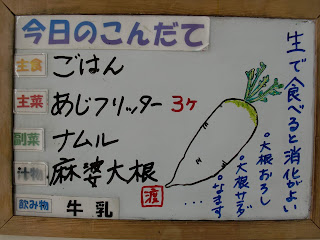 今日のこんだて
主食 ごはん
主菜 あじフリッター 3ヶ
副菜 ナムル
汁物 麻婆大根
飲み物 牛乳
生で食べると消化がよい
。大根おろし
。大根サラダ
。なます
...
渡